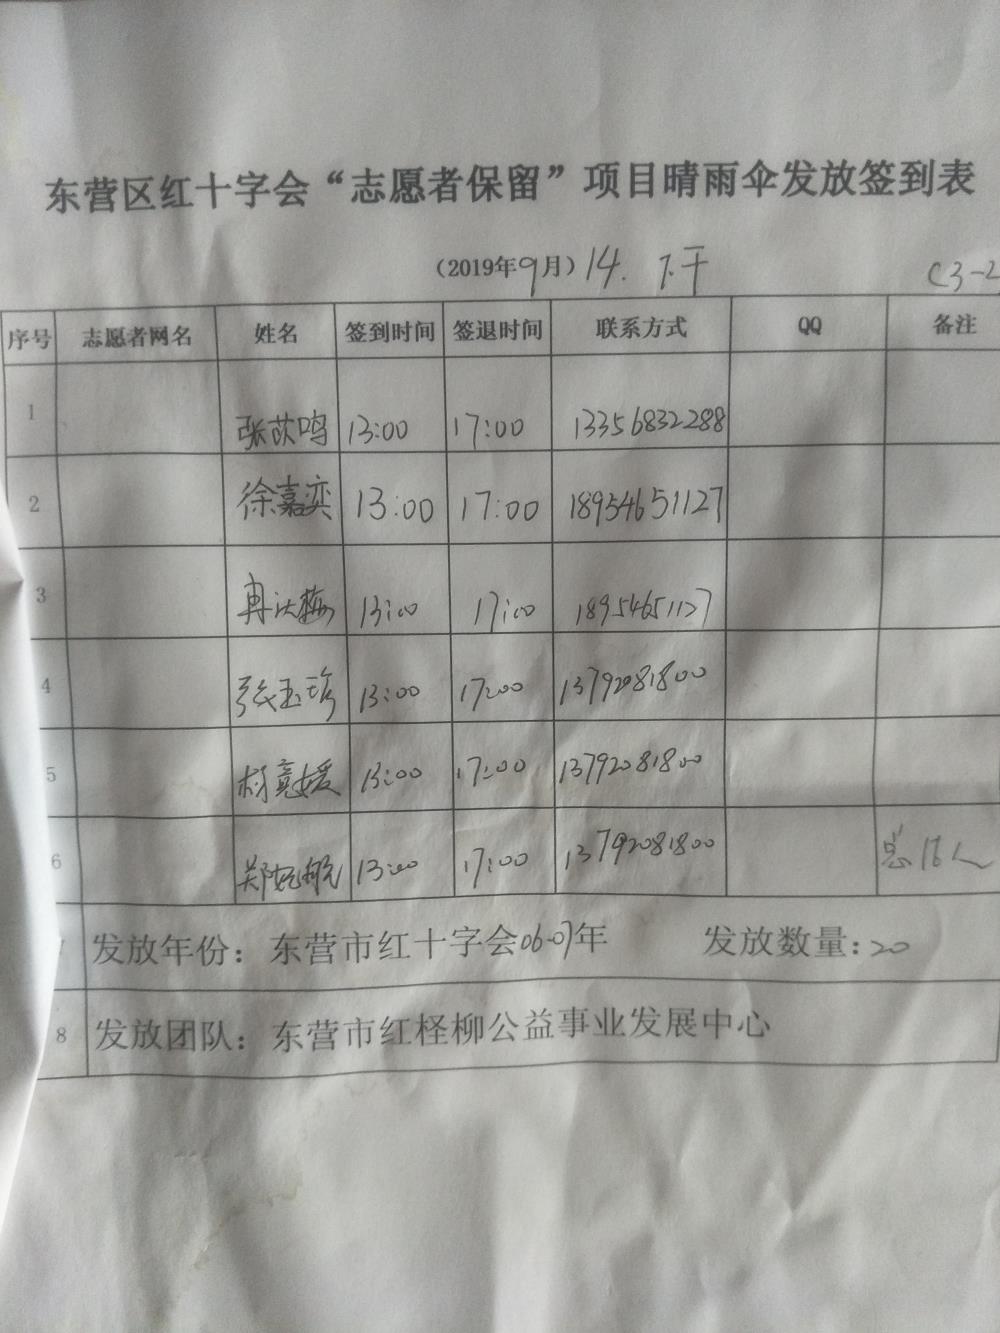 东营区红十字会“志愿者保留”项目晴雨伞发放签到表
（2019年9月）14. 下午 C3-2
序号 志愿者网名 姓名 签到时间 签退时间 联系方式 QQ 备注
1 张苡鸣 13:00 17:00 13356832288
2 徐嘉奕 13:00 17:00 18954651127
3 13:00 17:00 18954651127
4 张玉珍 13:00 17:00 13792081800
5 13:00 17:00 13792081800
6 13:00 17:00 13792081800 总16人
7 发放年份：东营市红十字会06-07年 发放数量：20
8 发放团队：东营市红柽柳公益事业发展中心